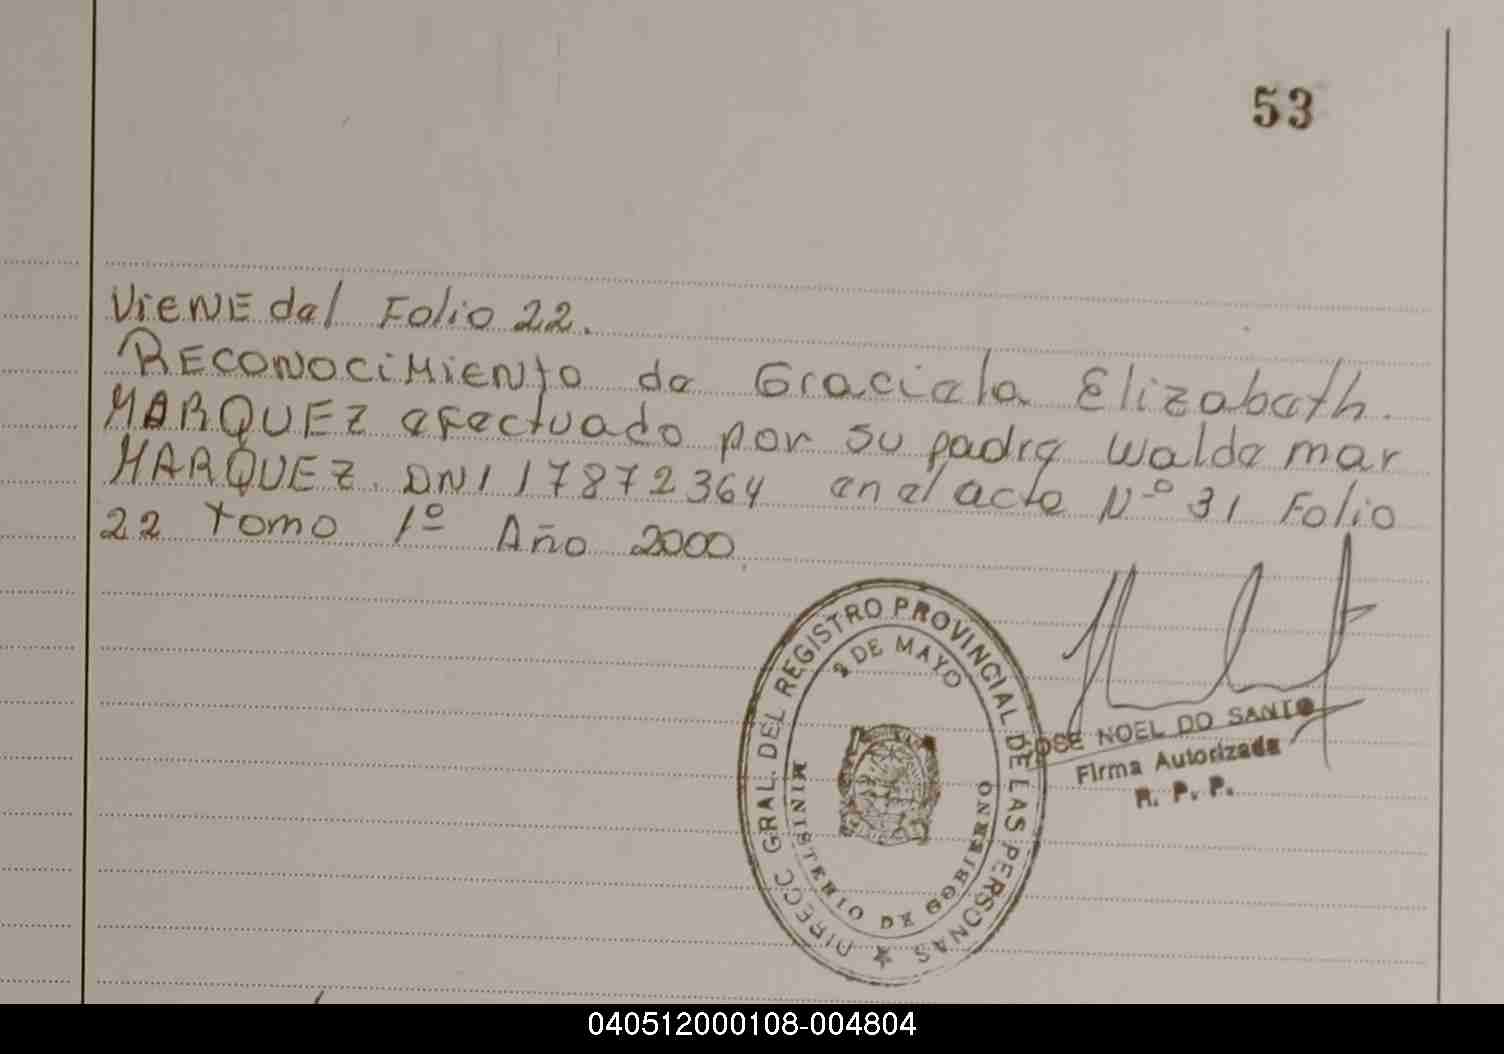 53
Viene del Folio 22.
Reconocimiento de Graciela Elizabeth.
MARQUEZ efectuado por su padre Waldemar
MARQUEZ. DNI 17872364 en el acta Nº 31 Folio
22 Tomo 1º Año 2000
DIRECC. GRAL. DEL REGISTRO PROVINCIAL DE LAS PERSONAS
2 DE MAYO
MINISTERIO DE GOBIERNO
JOSE NOEL DO SANTO
Firma Autorizada
R. P. P.
040512000108-004804